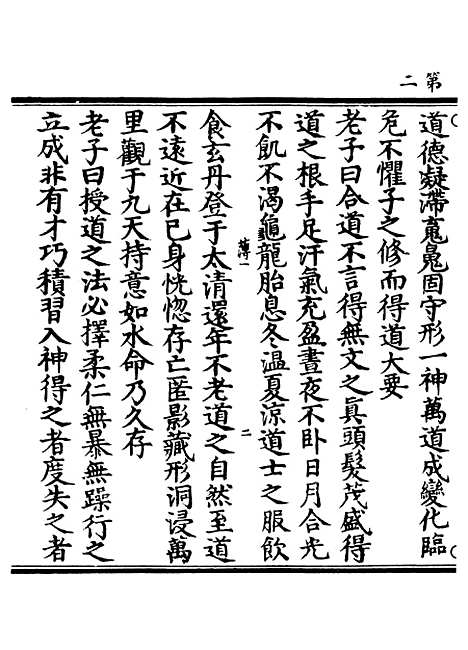 第二
道德凝滯䰟鬼固守形一神萬道成變化臨
危不懼子之修而得道大要
老子曰合道不言得無文之真頭髮茂盛得
道之根手足汗氣充盈晝夜不卧日月合光
不飢不渴龜龍胎息冬温夏涼道士之服飲
薄一
二
食玄丹登于太清還年不老道之自然至道
不遠近在已身恍惚存亡匿影藏形洞浸萬
里觀于九天持意如水命乃久存
老子曰授道之法必擇柔仁無暴無躁行之
立成非有才巧積習入神得之者度失之者